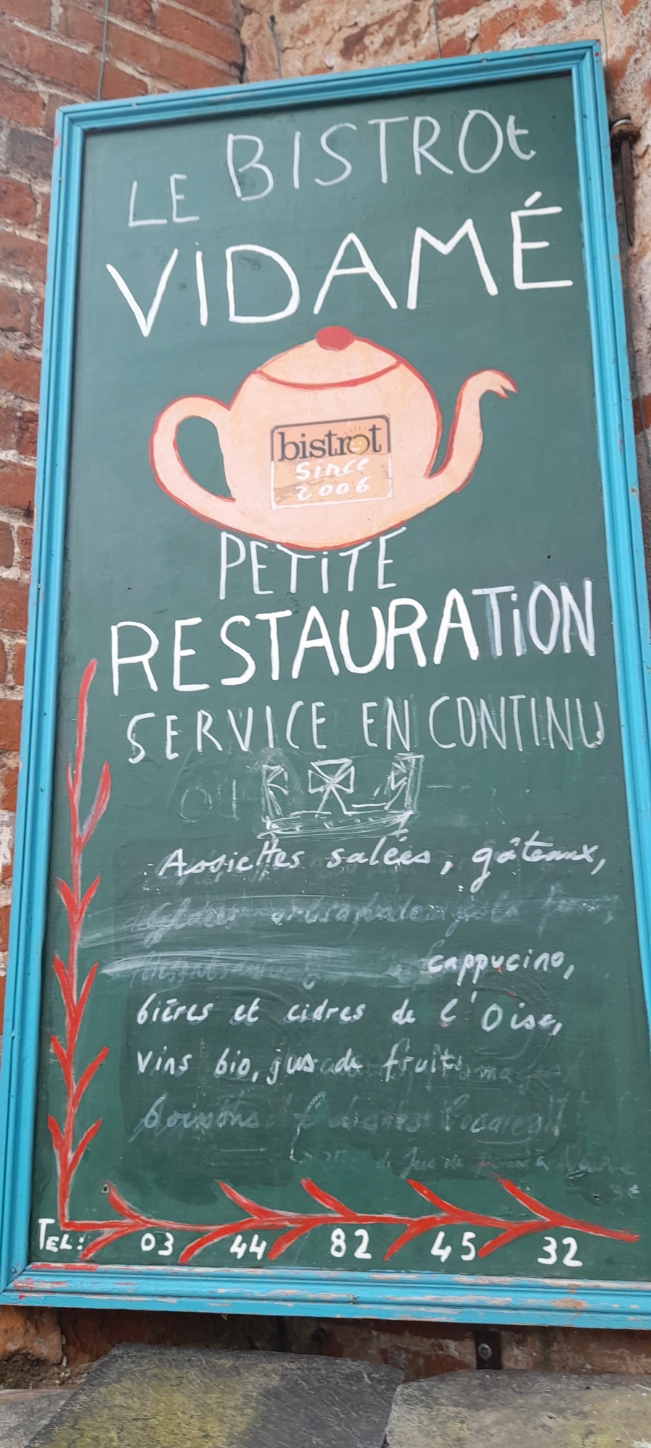 LE BISTROt
VIDAMÉ
bistrot
Since
2006
PETITE
RESTAURATION
SERVICE EN CONTINU
Assiettes salées, gâteaux,
cappucino,
bières et cidres de l'Oise,
vins bio, jus de fruits
TEL: 03 44 82 45 32